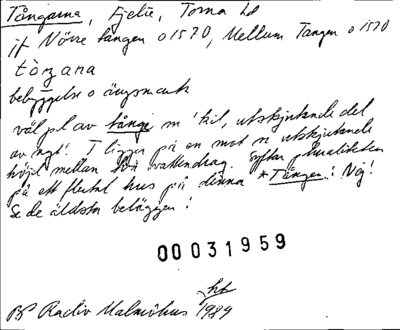 Tångarna, Fjelie, Torna hd
jf Norre tången o 1570, Mellum Tangen o 1570
tòŋana
bebyggelse o ängsmark
väl pl av tånge m 'kil, utskjutande del
av ngt'. T ligger på en mot n utskjutande
höjd mellan två vattendrag. Syftar pluraliteten
på ett flertal hus på denna *Tången? Nej!
Se de äldsta beläggen!
00031959
BP Radio Malmöhus 1989